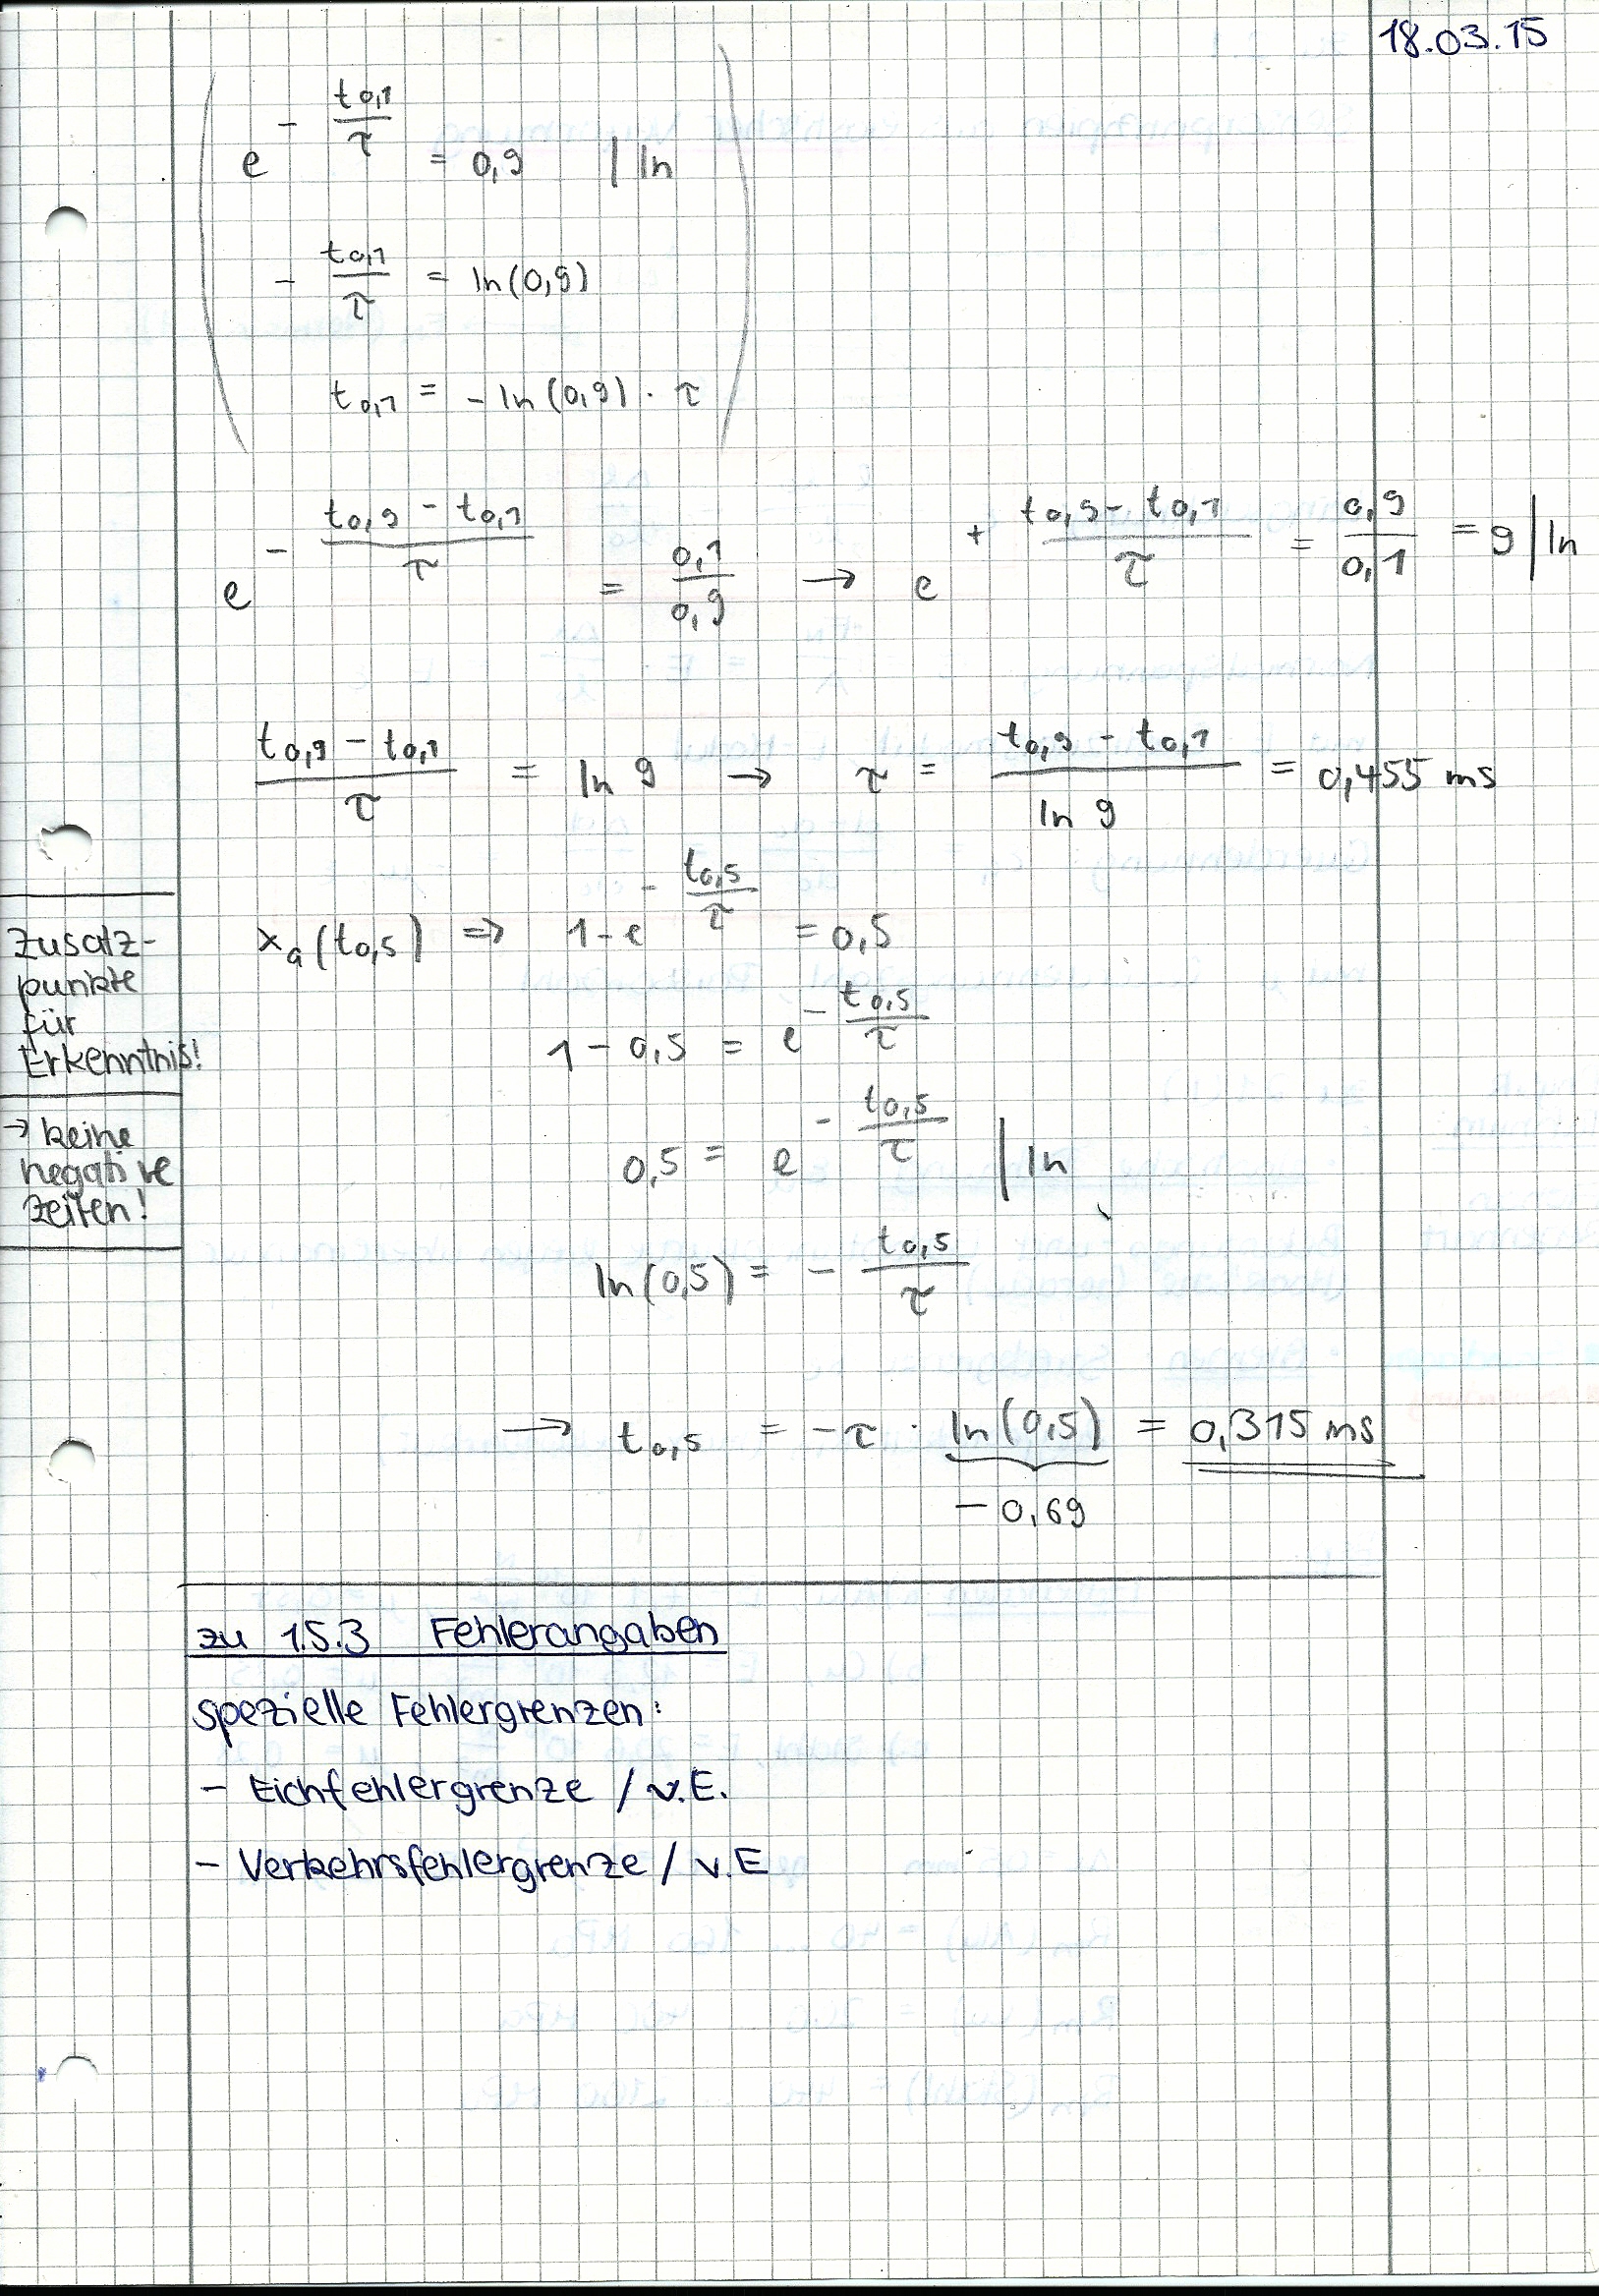 18.03.15
e^(- t0,1/τ) = 0,9 | ln
- t0,1/τ = ln(0,9)
t0,1 = - ln(0,9) · τ
e^(- (t0,9 - t0,1)/τ) = 0,1/0,9 → e^(+ (t0,9 - t0,1)/τ) = 0,9/0,1 = 9 | ln
(t0,9 - t0,1)/τ = ln 9 → τ = (t0,9 - t0,1)/ln 9 = 0,455 ms
Zusatz-
punkte
für
Erkenntnis!
→ keine
negative
Zeiten!
xa(t0,5) ⇒ 1 - e^(- t0,5/τ) = 0,5
1 - 0,5 = e^(- t0,5/τ)
0,5 = e^(- t0,5/τ) | ln
ln(0,5) = - t0,5/τ
→ t0,5 = -τ · ln(0,5) = 0,315 ms
- 0,69
zu 1.5.3 Fehlerangaben
spezielle Fehlergrenzen:
- Eichfehlergrenze / v.E.
- Verkehrsfehlergrenze / v.E